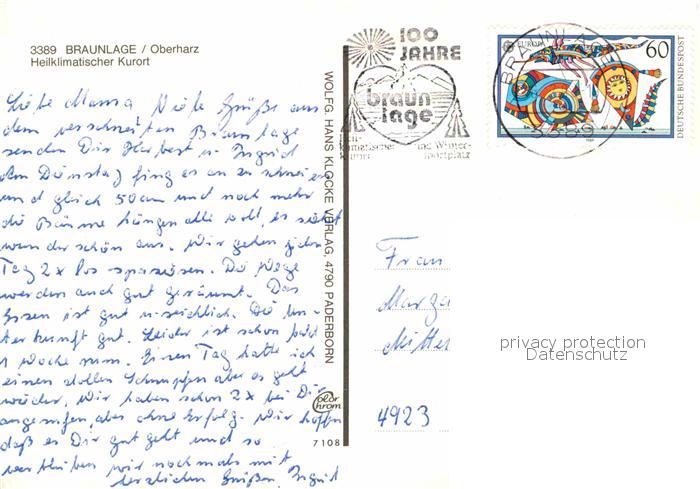 3389 BRAUNLAGE / Oberharz
Heilklimatischer Kurort
Liebe Mama Viele Grüße aus
dem verschneiten Braunlage
senden Dir Herbert u. Ingrid
Am Dienstag fing es an zu schneien
und gleich 50 cm und noch mehr
die Bäume hängen alle voll, es sieht
wunderschön aus. Wir gehen jeden
Tag 2x los spazieren. Die Wege
werden auch gut geräumt. Das
Essen ist gut u. reichlich. Die Un-
terkunft gut. Leider ist schon bald
1 Woche rum. Einen Tag hatte ich
einen tollen Schnupfen aber es geht
wieder. Wir haben schon 2x bei Dir
angerufen, aber ohne Erfolg. Wir hoffen
daß es Dir gut geht und so
verbleiben wir nochmals mit
herzlichen Grüßen, Ingrid
WOLFG. HANS KLOCKE VERLAG, 4790 PADERBORN
Color
chrom
7108
100
JAHRE
braun
lage
Heil-
klimatischer
Kurort
und Winter-
sportplatz
BRAUNLAGE
3389
EUROPA
60
DEUTSCHE BUNDESPOST
Frau
Marga
Mitte
4923
privacy protection
Datenschutz